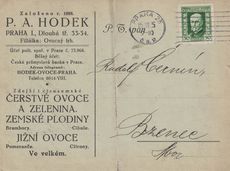 Založeno r. 1898.
P. A. HODEK
PRAHA I., Dlouhá tř. 33-34.
Filiálka: Ovocný trh.
Účet pošt. spoř. v Praze č. 73.968.
Běžný účet:
Česká průmyslová banka v Praze.
Adresa telegramů:
HODEK-OVOCE-PRAHA.
Telefon 8014 VIII.
Zdejší i cizozemské
ČERSTVÉ OVOCE
A ZELENINA.
ZEMSKÉ PLODINY
Brambory. Cibule.
JIŽNÍ OVOCE
Pomeranče. Citrony.
Ve velkém.
PRAHA
P. T. pan
Rudolf
Bzenec
Mor.